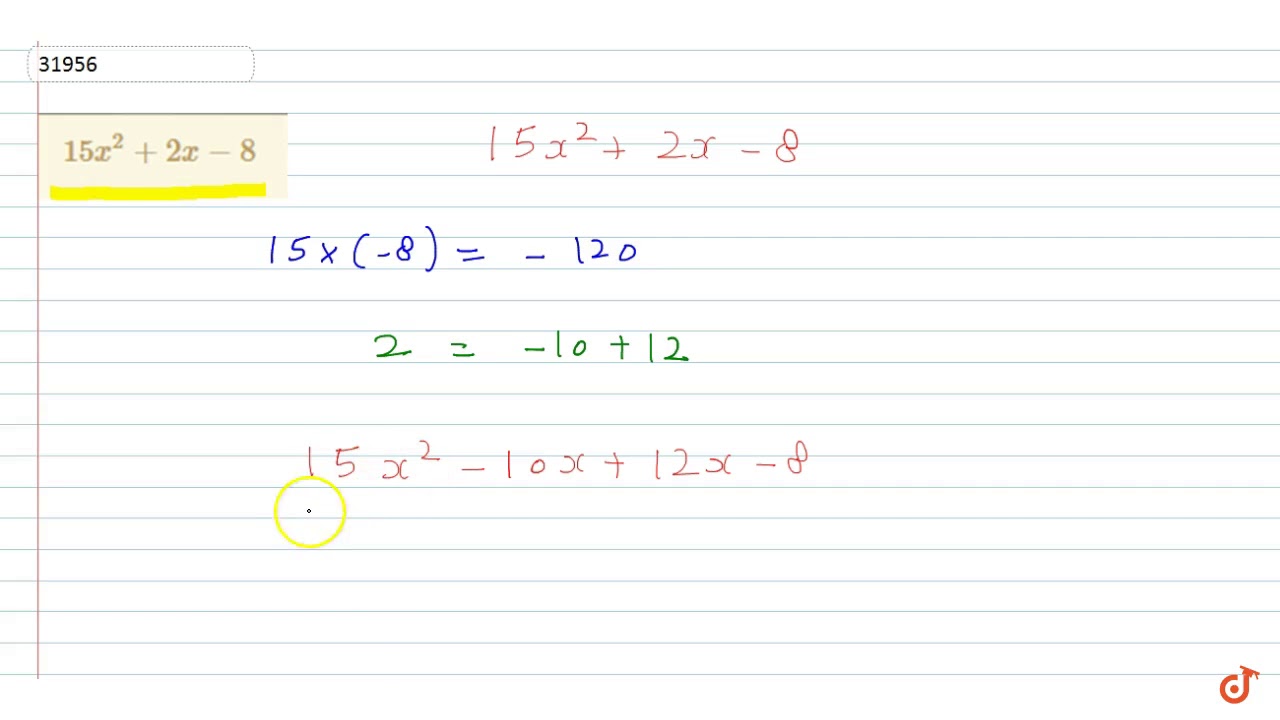 31956
15x² + 2x − 8
15x² + 2x − 8
15 × (−8) = − 120
2 = −10 + 12
15x² − 10x + 12x − 8